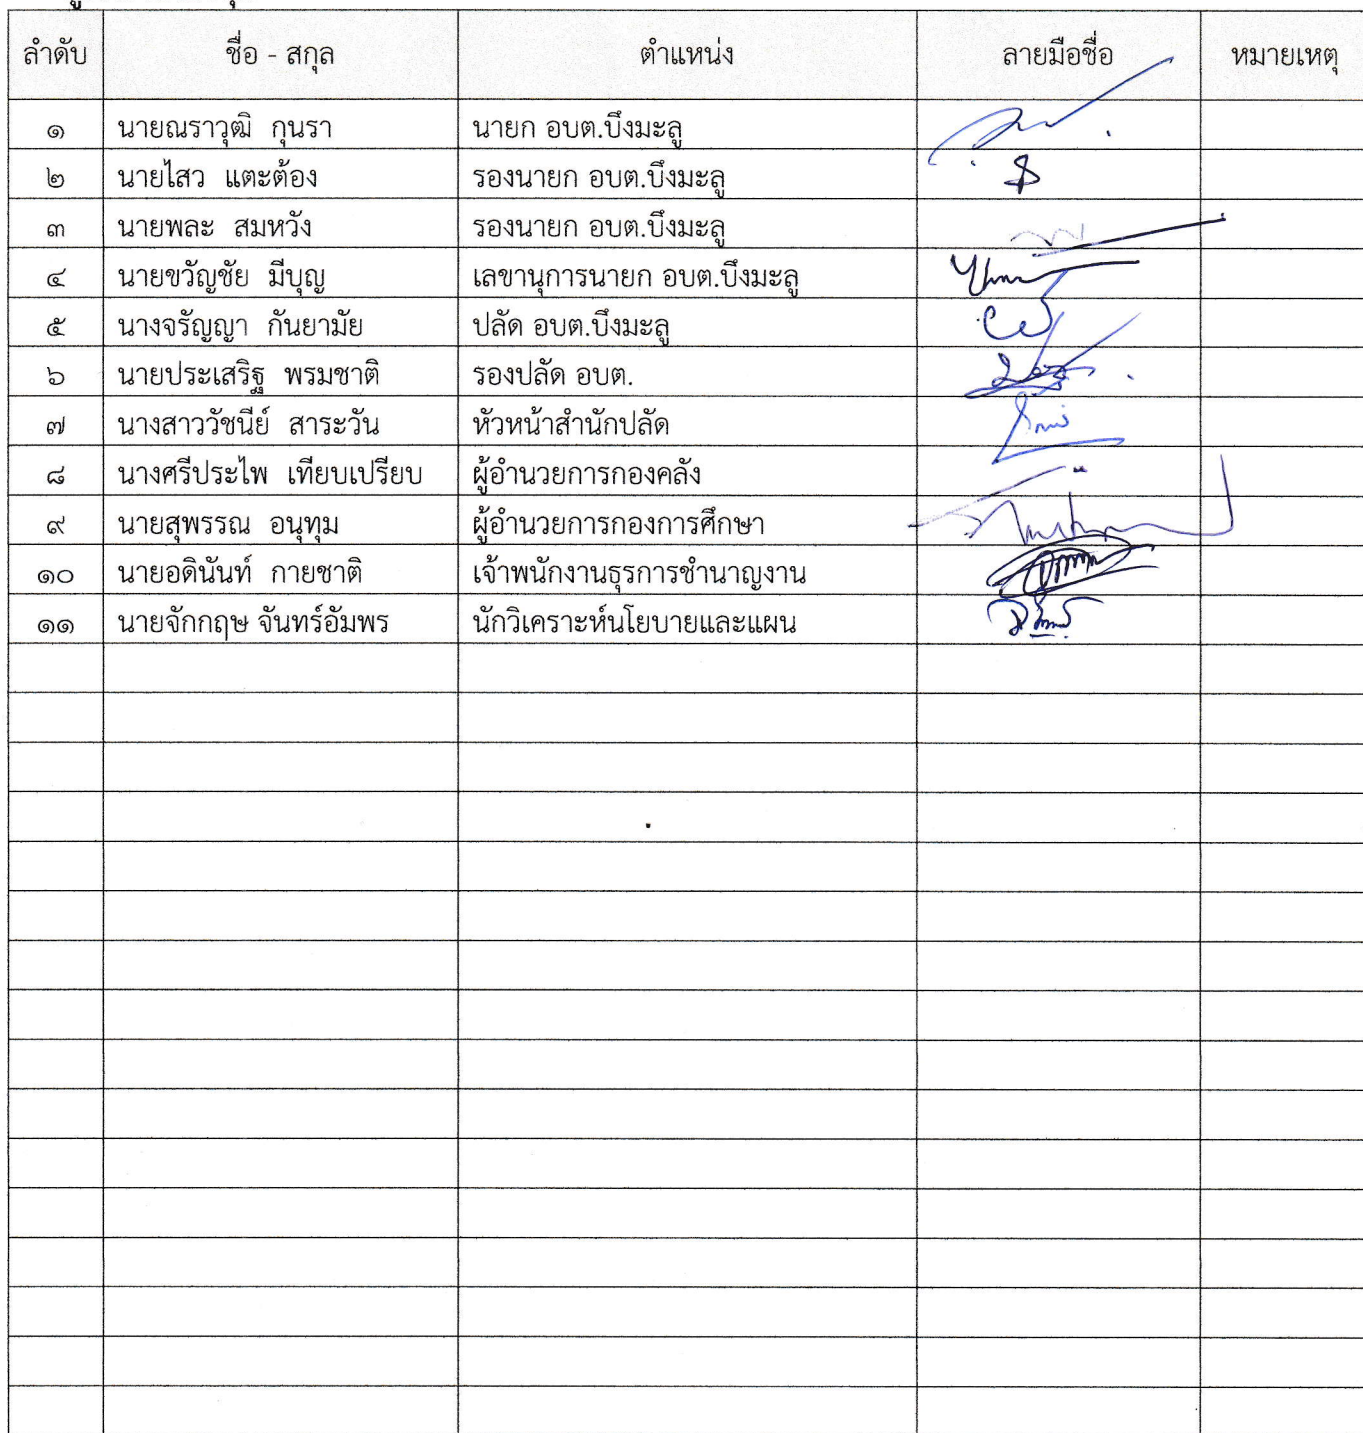 ลำดับ ชื่อ - สกุล ตำแหน่ง ลายมือชื่อ หมายเหตุ
๑ นายณราวุฒิ กุนรา นายก อบต.บึงมะลู
๒ นายไสว แตะต้อง รองนายก อบต.บึงมะลู
๓ นายพละ สมหวัง รองนายก อบต.บึงมะลู
๔ นายขวัญชัย มีบุญ เลขานุการนายก อบต.บึงมะลู
๕ นางจรัญญา กันยามัย ปลัด อบต.บึงมะลู
๖ นายประเสริฐ พรมชาติ รองปลัด อบต.
๗ นางสาววัชนีย์ สาระวัน หัวหน้าสำนักปลัด
๘ นางศรีประไพ เทียบเปรียบ ผู้อำนวยการกองคลัง
๙ นายสุพรรณ อนุทุม ผู้อำนวยการกองการศึกษา
๑๐ นายอดินันท์ กายชาติ เจ้าพนักงานธุรการชำนาญงาน
๑๑ นายจักกฤษ จันทร์อัมพร นักวิเคราะห์นโยบายและแผน